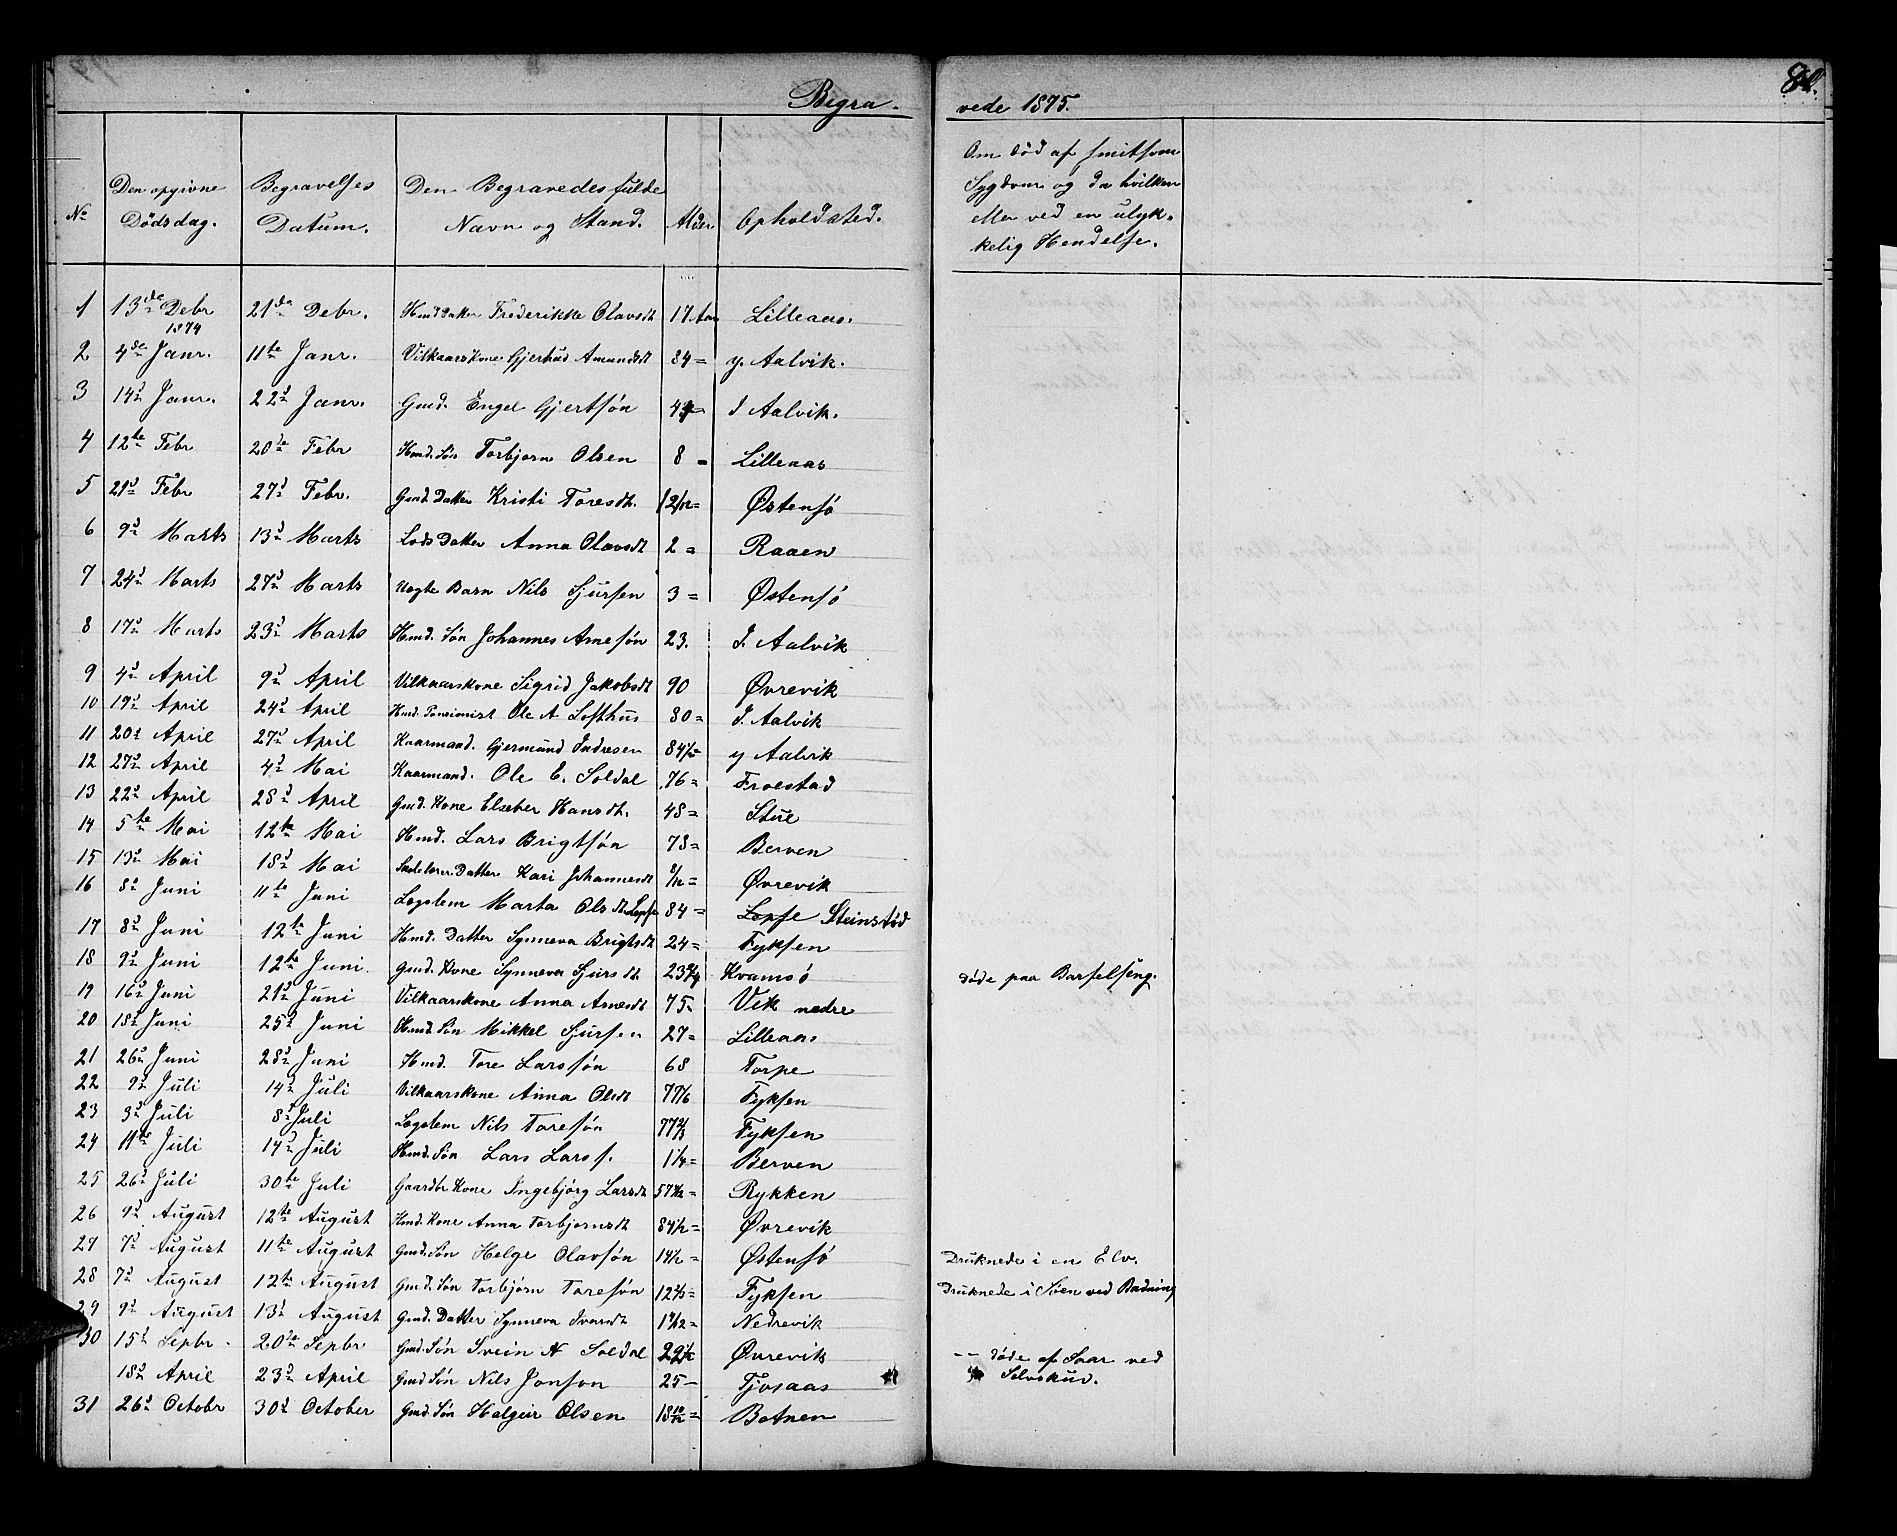 Begra-
vede 1875.
No
Den opgivne Dödsdag.
Begravelses Datum.
Den Begravedes fulde Navn og Stand.
Alder
Opholdsted.
Om död af smitsom
Sygdom og da hvilken
eller ved en ulyk-
kelig Hendelse.
1 13de Debr 1874 21de Debr. Hmd Datter Frederikke Olavsdt 17 Aar Lilleaas.
2 4de Janr. 11te Janr. Vilkaarskone Gjerhud Amundsdt 84 = y. Aalvik.
3 14d Janr. 22d Janr. Gmd. Engel Gjertsøn I Aalvik.
4 12te Febr 20de Febr Hmd. Søn Torbjorn Olsen 8 = Lilleaas
5 21d Febr 27d Febr. Gmd. Datter Kristi Toresdt. Østensö
6 9d Marts 13d Marts Lods Datter Anna Olavsdt 2 = Raaen
7 24d Marts 27d Marts Uægte Barn Nils Sjursen 3 = Østensö
8 17d Marts 23d Marts Hmd. Søn Johannes Arnesøn 23. I. Aalvik
9 4d April 9d April Vilkaarskone Sigrid Jakobsdt 90 Øvrevik
10 19d April 24d April Hmd. Pensionist Ole A Lofthus 80 = I. Aalvik
11 20d April 27d April Kaarmand. Gjermund Indresen 84½ = y Aalvik
12 27d April 4d Mai Kaarmand. Ole E. Soldal 76 = Froestad
13 22d April 28d April Gmd. Kone Elseber Hansdt. 48 = Stue
14 5te Mai 12te Mai Hmd. Lars Brigtsøn 73 = Berven
15 13d Mai 18d Mai Skolelærer Datter Kari Johannesdt Øvrevik
16 8d Juni 11te Juni Lægslem Marta Olsdt Lepse 84 = Lepse Steinstöd
17 8d Juni 12te Juni Hmd. Datter Synneva Brigtsdt 24 = Fyksen
18 9d Juni 12te Juni. Gmd. Kone Synneva Sjursdt Kvamsö döde paa Barselseng.
19 16d Juni 21d Juni Vilkaarskone Anna Arnesdt 75 - Vik nedre
20 18d Juni 25d Juni Hmd. Søn Mikkel Sjursen 27 = Lilleaas
21 26d Juni 28d Juni Hmd. Tore Larssøn 68 Torpe
22 9d Juli 14d Juli Vilkaarskone Anna Olsdt Fyksen
23 3d Juli 8d Juli Lægslem Nils Toresøn 77⅔ Fyksen
24 11te Juli 14d Juli Hmd. Søn Lars Larss. 1¼ = Berven
25 26d Juli 30te Juli Gaardbr Kone Ingebjörg Larsdt Rykken
26 9d August 12te August Hmd. Kone Anna Torbjornsdt 84½ = Øvrevik
27 7d August 11te August Gmd. Søn Helge Olavsøn 14½ = Østensö Druknede i en Elv.
28 7d August 12te August Gmd. Søn Torbjörn Toresøn 12⅔ = Fyksen Druknede i Søen ved Badning
29 9d August 13d August Gmd. Datter Synneva Ivarsdt Nedrevik
30 15d Sepbr. 20de Sepbr Gmd. Søn Svein N Soldal Øvrevik -- döde af Saar ved
18d April 23d April Gmd Søn Nils Jonson 25 - Tjosaas Selvskud.
31 26d Octobr 30d October Gmd. Søn Halgeir Olsen 18 10/12 = Botnen